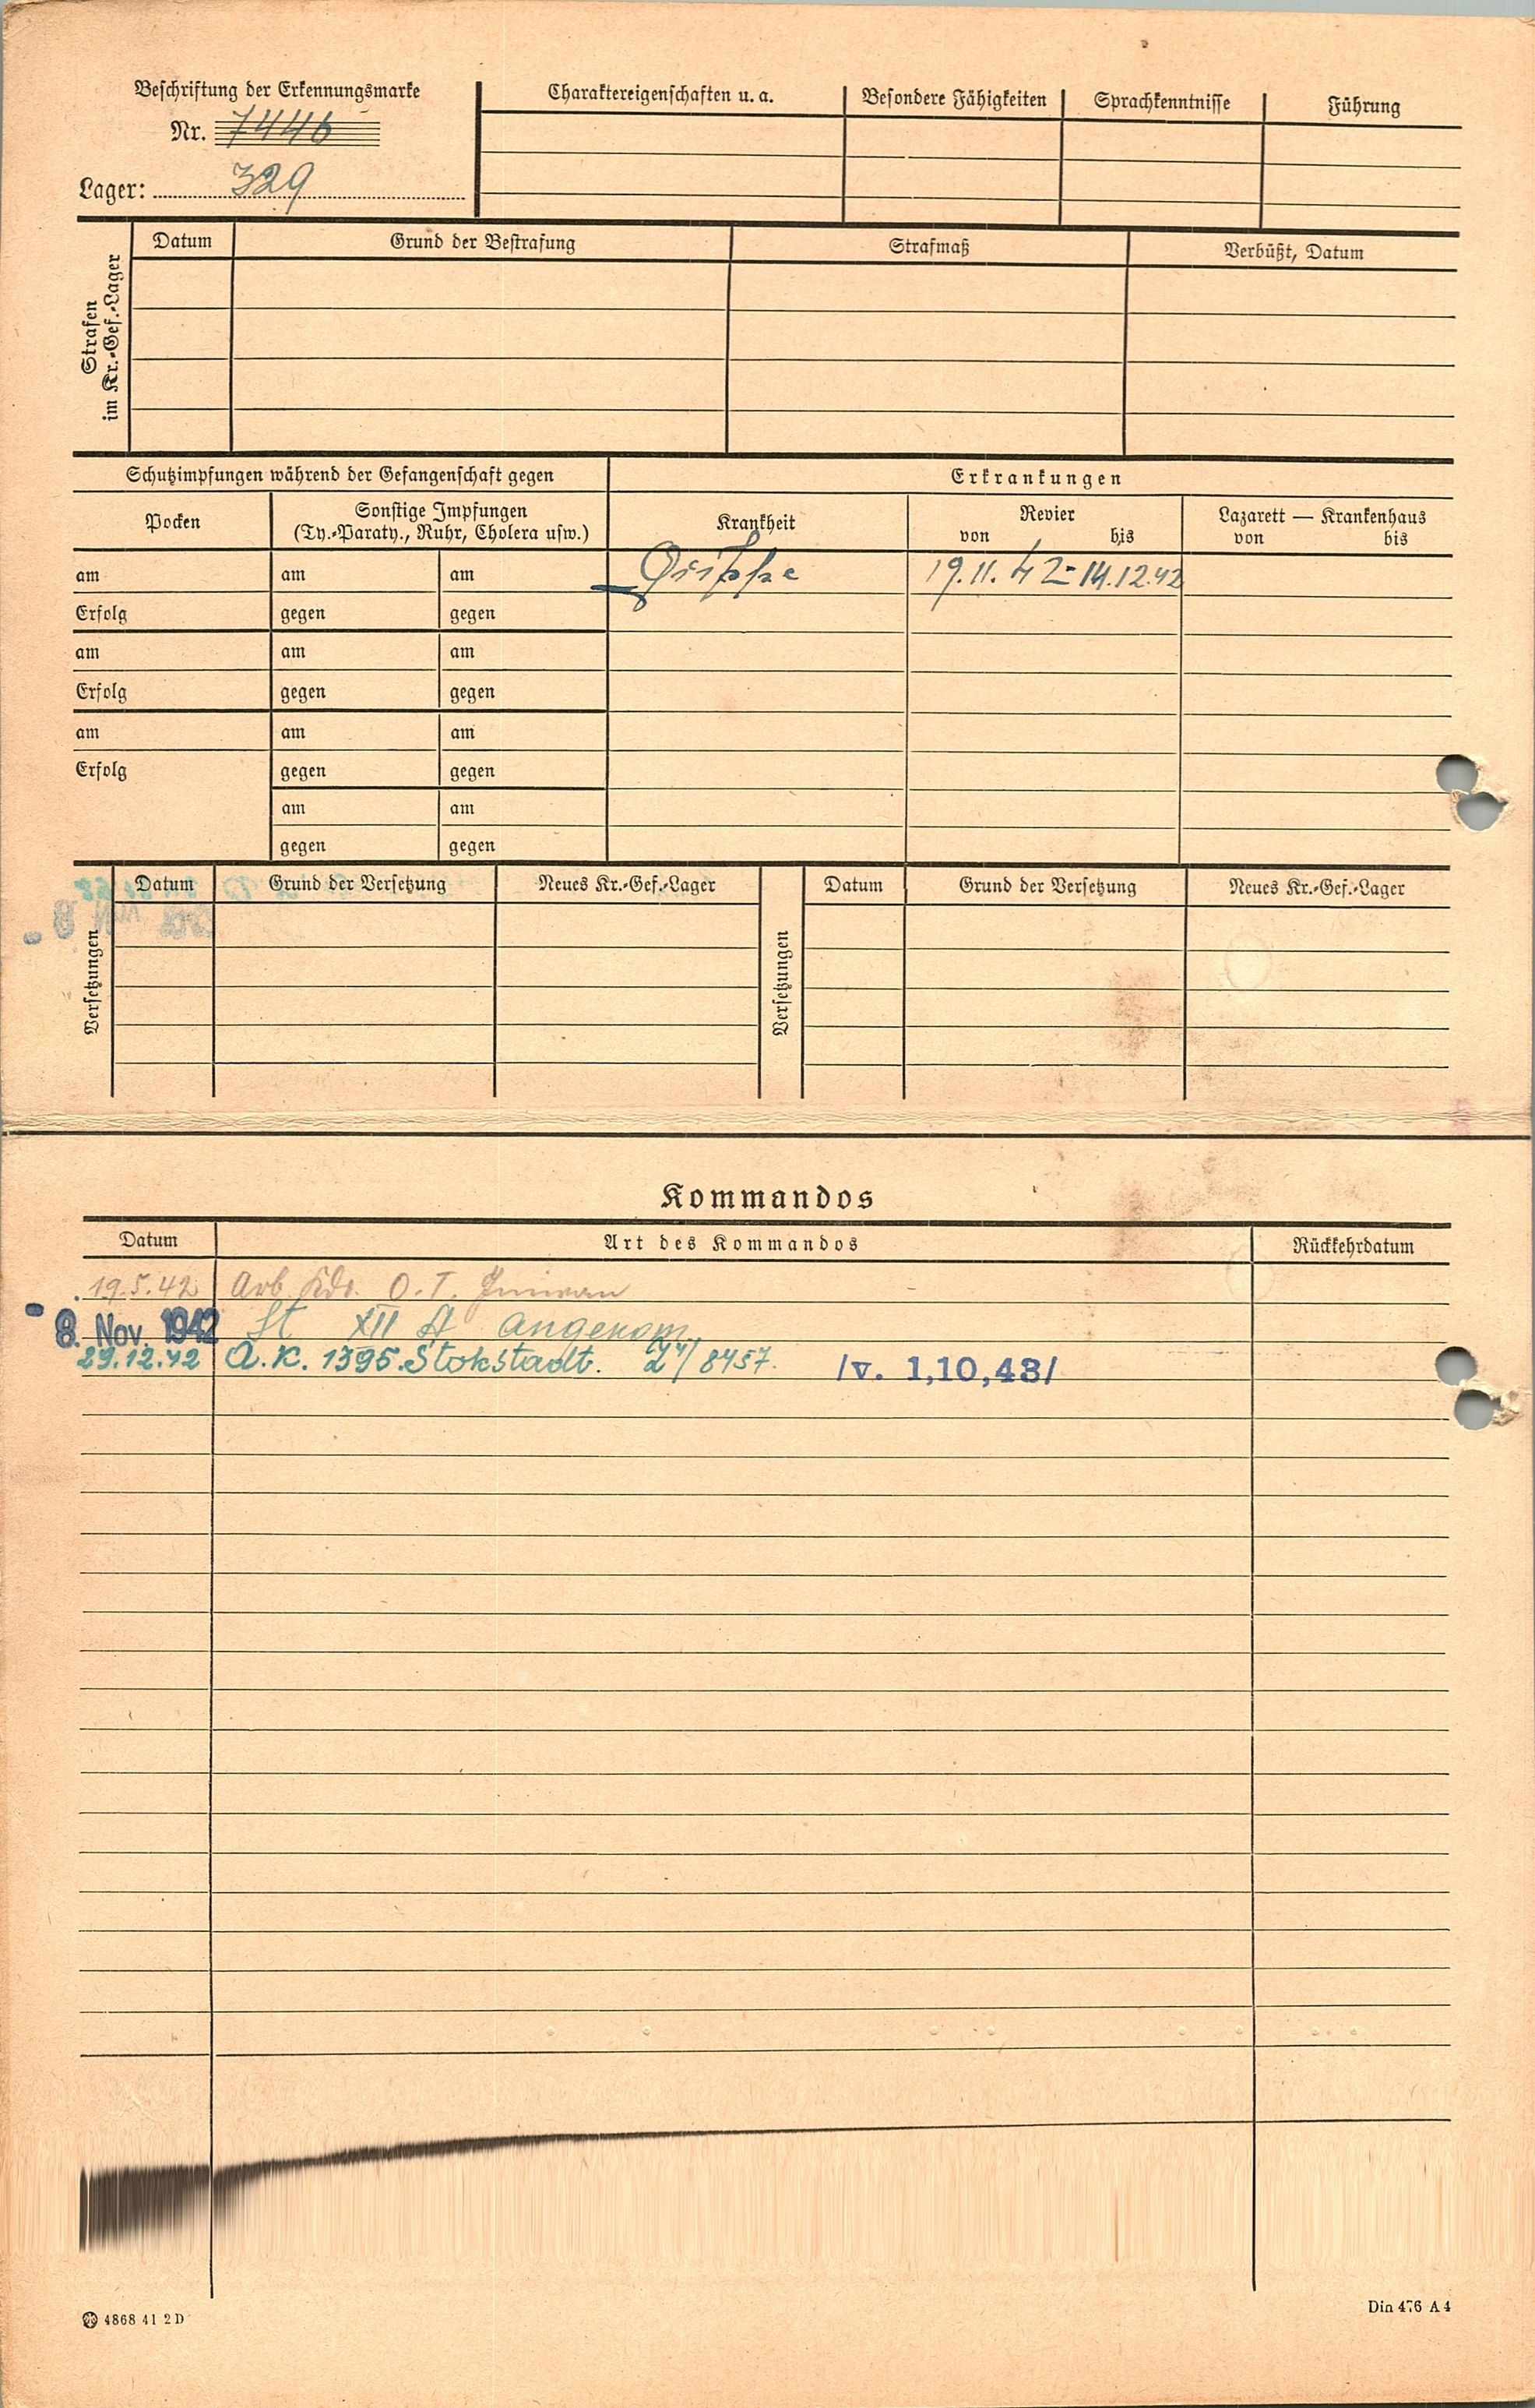 Beschriftung der Erkennungsmarke
Nr. 7446
Lager: 329
Charaktereigenschaften u. a. Besondere Fähigkeiten Sprachkenntnisse Führung
Strafen
im Kr.-Gef.-Lager
Datum Grund der Bestrafung Strafmaß Verbüßt, Datum
Schutzimpfungen während der Gefangenschaft gegen
Erkrankungen
Pocken
Sonstige Impfungen
(Ty.-Paraty., Ruhr, Cholera usw.)
Krankheit
Revier
von bis
Lazarett — Krankenhaus
von bis
am am am Grippe 19.11.42-14.12.42
Erfolg gegen gegen
am am am
Erfolg gegen gegen
am am am
Erfolg gegen gegen
am am
gegen gegen
Versetzungen
Datum Grund der Versetzung Neues Kr.-Gef.-Lager
Versetzungen
Datum Grund der Versetzung Neues Kr.-Gef.-Lager
Kommandos
Datum Art des Kommandos Rückkehrdatum
19.5.42 Arb. Kdo. O. T.
- 8. Nov. 1942 St XII A angekom.
29.12.42 A.K. 1395. Stokstadt. 8457. /v. 1,10,43/
4868 41 2 D
Din 476 A 4